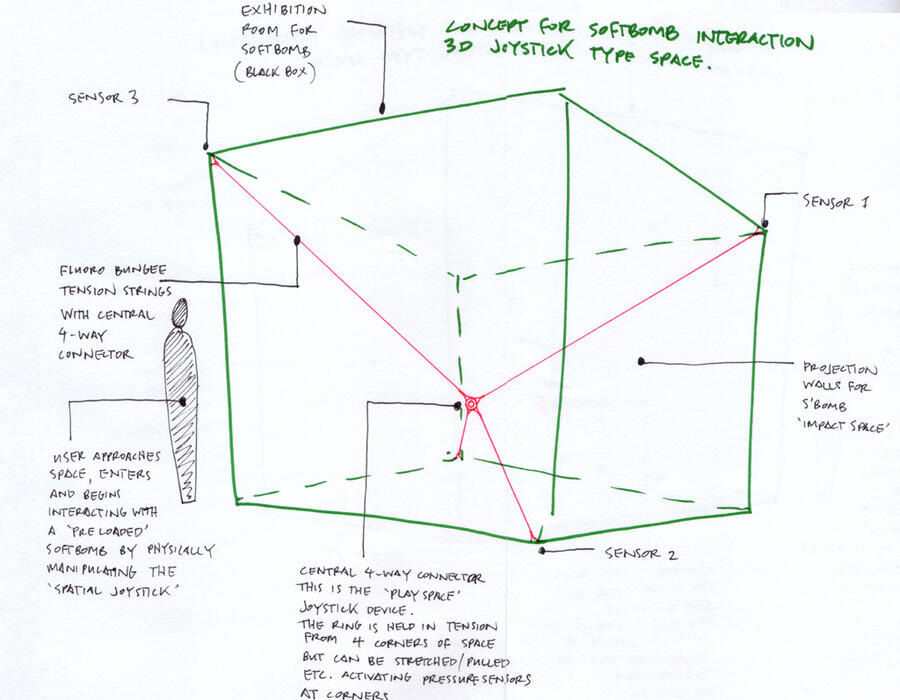 EXHIBITION
ROOM FOR
SOFTBOMB
(BLACK BOX)
CONCEPT FOR SOFTBOMB INTERACTION
3D JOYSTICK TYPE SPACE.
SENSOR 3
SENSOR 1
FLUORO BUNGEE
TENSION STRINGS
WITH CENTRAL
4-WAY
CONNECTOR
PROJECTION
WALLS FOR
S'BOMB
'IMPACT SPACE'
USER APPROACHES
SPACE, ENTERS
AND BEGINS
INTERACTING WITH
A 'PRELOADED'
SOFTBOMB BY PHYSICALLY
MANIPULATING THE
'SPATIAL JOYSTICK'
SENSOR 2
CENTRAL 4-WAY CONNECTOR
THIS IS THE 'PLAYSPACE'
JOYSTICK DEVICE.
THE RING IS HELD IN TENSION
FROM 4 CORNERS OF SPACE
BUT CAN BE STRETCHED/PULLED
ETC. ACTIVATING PRESSURE SENSORS
AT CORNERS